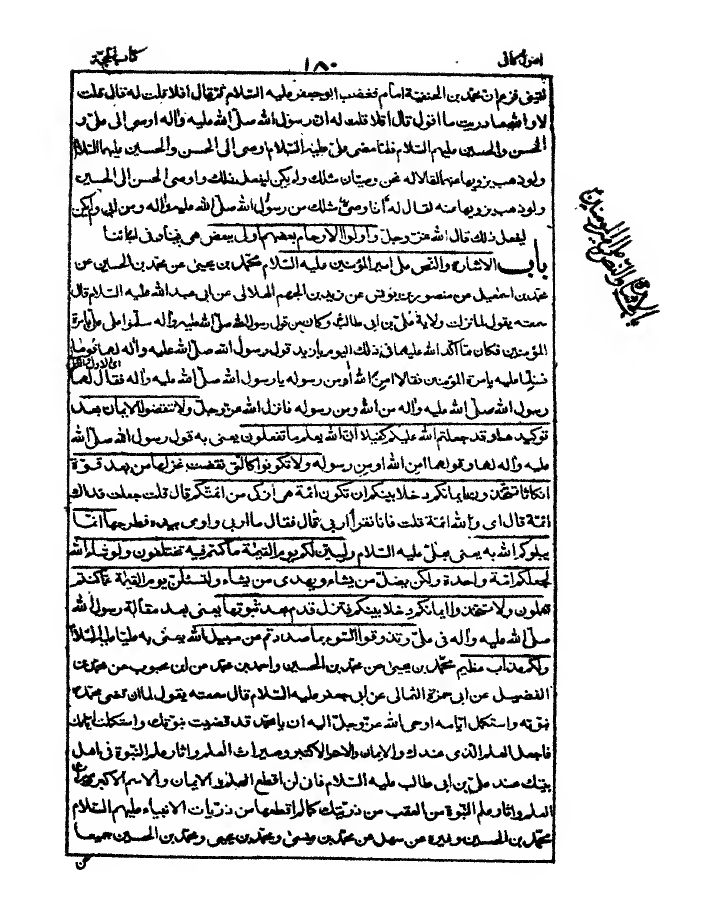 اصول كافى
١٨٠
كتاب الحجة
لقينى فزعم ان محمد بن الحنفية امام فغضب ابو جعفر عليه السلام ثم قال افلا قلت له قال قلت
لا والله ما دريت ما اقول قال افلا قلت له ان رسول الله صلّى الله عليه واله اوصى الى علىّ و
الحسن والحسين عليهم السلام فلمّا مضى علىّ عليه السلام اوصى الى الحسن والحسين عليهما السلام
ولو ذهب يزويها عنهما لقالا له نحن وصيّان مثلك ولم يكن ليفعل ذلك واوصى الحسن الى الحسين
ولو ذهب يزويها عنه لقال له أنا وصىّ مثلك من رسول الله صلّى الله عليه واله ومن ابى ولم يكن
ليفعل ذلك قال الله عزّ وجلّ واولوا الارحام بعضهم اولى ببعض هى فينا وفى ابنائنا
باب الاشارة والنص على امير المؤمنين عليه السلام محمّد بن يحيى عن محمّد بن الحسين عن
محمّد بن اسمعيل عن منصور بن يونس عن زيد بن الجهم الهلالى عن ابى عبد الله عليه السلام قال
سمعته يقول لمّا نزلت ولاية علىّ بن ابى طالب وكان من قول رسول الله صلّى الله عليه واله سلّموا على علىّ بامرة
المؤمنين فكان ممّا اكّد الله عليهما فى ذلك اليوم يا زيد قول رسول الله صلّى الله عليه واله لهما قوما
فسلّما عليه بامرة المؤمنين فقالا امن الله او من رسوله يا رسول الله فقال لهما
رسول الله صلّى الله عليه واله من الله ومن رسوله فانزل الله عزّ وجلّ ولا تنقضوا الايمان بعد
توكيدها وقد جعلتم الله عليكم كفيلا انّ الله يعلم ما تفعلون يعنى به قول رسول الله صلّى الله
عليه واله لهما وقولهما امن الله او من رسوله ولا تكونوا كالّتى نقضت غزلها من بعد قوّة
انكاثا تتخذون ايمانكم دخلا بينكم ان تكون ائمة هى ازكى من ائمتكم قال قلت جعلت فداك
ائمة قال اى والله ائمة قلت فانّا نقرأ اربى قال فقال ما اربى واومى بيده فطرحها انّما
يبلوكم الله به يعنى بعلىّ عليه السلام وليبيّنن لكم يوم القيمة ما كنتم فيه تختلفون ولو شاء الله
لجعلكم امّة واحدة ولكن يضلّ من يشاء ويهدى من يشاء ولتسئلنّ يوم القيمة عمّا كنتم
تعملون ولا تتخذوا ايمانكم دخلا بينكم فتزل قدم بعد ثبوتها يعنى بعد مقالة رسول الله
صلّى الله عليه واله فى علىّ وتذوقوا السّوء بما صددتم عن سبيل الله يعنى به عليّا عليه السلام
ولكم عذاب عظيم محمّد بن يحيى عن محمّد بن الحسين واحمد بن محمّد عن ابن محبوب عن محمّد بن
الفضيل عن ابى حمزة الثمالى عن ابى جعفر عليه السلام قال سمعته يقول لمّا ان قضى محمّد
نبوّته واستكمل ايّامه اوحى الله عزّ وجلّ اليه ان يا محمّد قد قضيت نبوّتك واستكملت ايّامك
فاجعل العلم الّذى عندك والايمان والاسم الاكبر وميراث العلم واثار علم النبوّة فى اهل
بيتك عند علىّ بن ابى طالب عليه السلام فانّى لن اقطع العلم والايمان والاسم الاكبر وميراث
العلم واثار علم النبوّة من العقب من ذرّيتك كما لم اقطعها من ذرّيات الانبياء عليهم السلام
محمّد بن الحسين وغيره عن سهل عن محمّد بن عيسى ومحمّد بن يحيى ومحمّد بن الحسين جميعا
عن